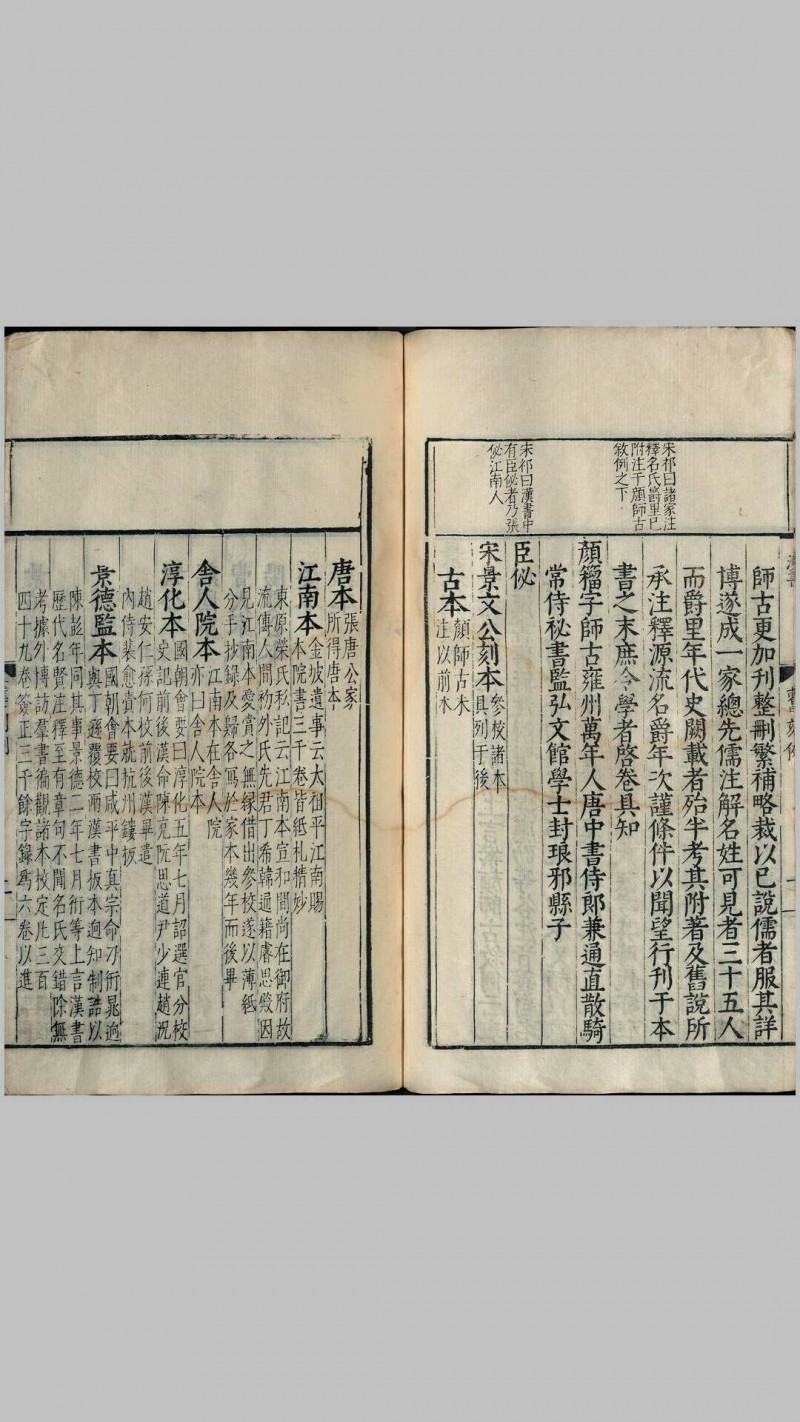 宋祁曰諸家注
釋名氏爵里已
附注于顔師古
敘例之下
宋祁曰漢書中
有臣佖者乃張
佖江南人
師古更加刊整刪繁補略裁以已說儒者服其詳
博遂成一家總先儒注解名姓可見者三十五人
而爵里年代史闕載者殆半考其附著及舊說所
承注釋源流名爵年次謹條件以聞望行刊于本
書之末庶令學者啓卷具知
顔籒字師古雍州萬年人唐中書侍郎兼通直散騎
常侍祕書監弘文館學士封琅邪縣子
臣佖
宋景文公刻本
參校諸本
具列于後
古本
顔師古未
注以前本
唐本
張唐公家
所得唐本
江南本
金坡遺事云太祖平江南賜
本院書三千卷皆紙札精妙
東原榮氏私記云江南本宣和間尚在御府故
流傳人間初外氏先君丁希韓通籍睿思殿因
見江南本愛賞之無緣借出參校遂以薄紙
分手抄録及歸各寫於家本幾年而後畢
舍人院本
江南本在舍人院
亦曰舍人院本
淳化本
國朝會要曰淳化五年七月詔選官分校
史記前後漢命陳充阮思道尹少連趙况
趙安仁孫何校前後漢畢遣
內侍裴愈賫本就杭州鏤板
景德監本
國朝會要曰咸平中真宗命刁衎晁逈
與丁遜覆校兩漢書板本逈知制誥以
陳彭年同其事景德二年七月衎等上言漢書
歷代名賢注釋至有章句不聞名氏交錯除無
考據外博訪羣書徧觀諸本校定凡三百
四十九卷簽正三千餘字録爲六卷以進